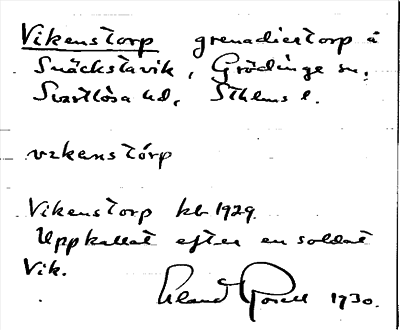 Vikenstorp grenadiertorp å
Snäckstavik, Grödinge sn,
Svartlösa hd, Sthlms l.
vikenstórp
Vikenstorp kb 1929.
Uppkallat efter en soldat
Vik.
Erland Rosell 1930.